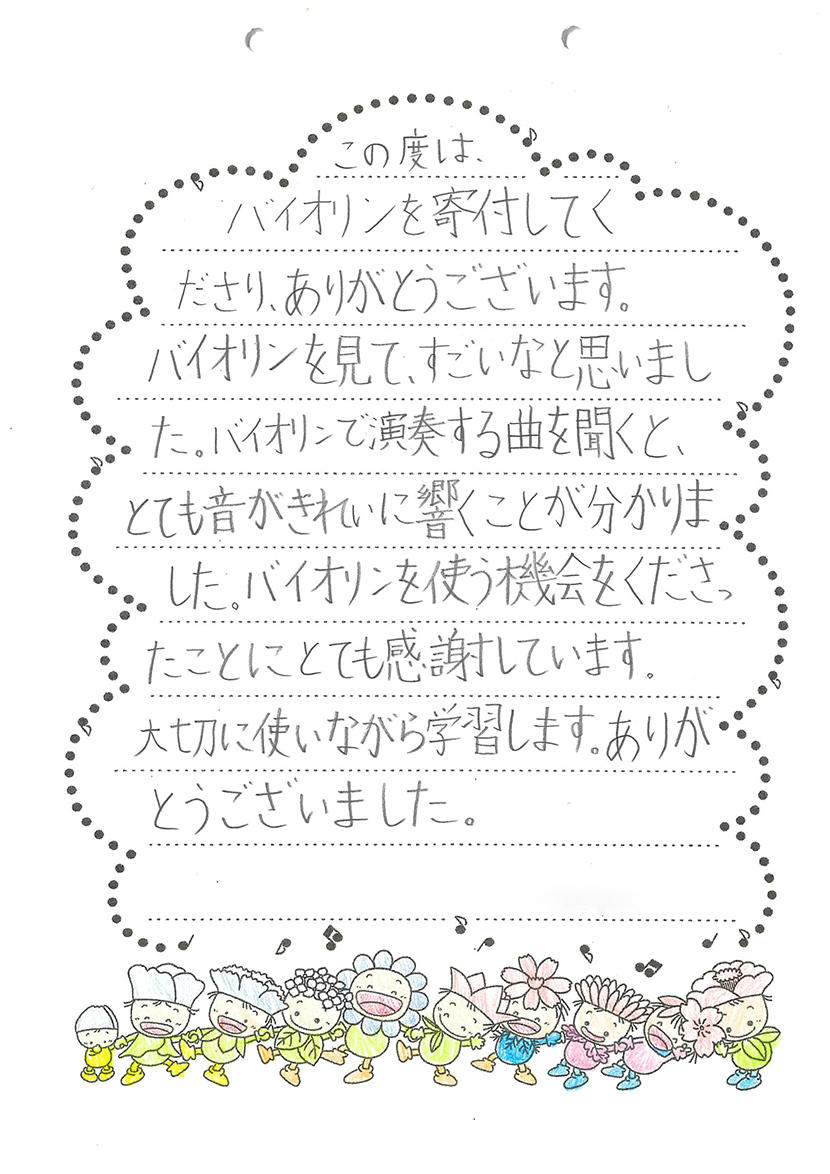 この度は、
バイオリンを寄付してく
ださり、ありがとうございます。
バイオリンを見て、すごいなと思いまし
た。バイオリンで演奏する曲を聞くと、
とても音がきれいに響くことが分かりま
した。バイオリンを使う機会をくださっ
たことにとても感謝しています。
大切に使いながら学習します。ありが
とうございました。